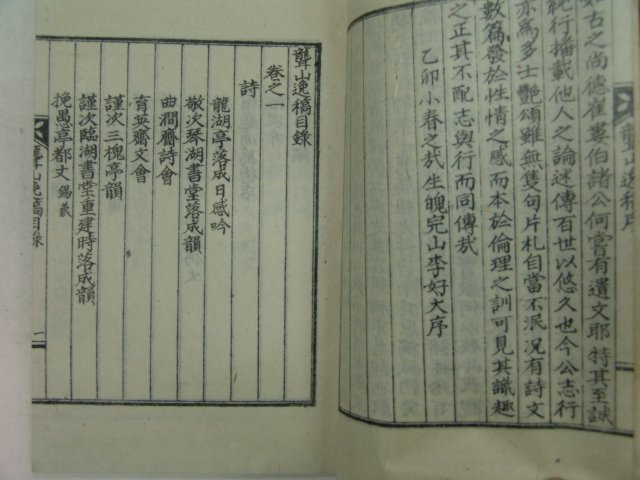 如古之尚德崔婁伯諸公何嘗有遺文耶特其至誠
統行播載他人之論述傳百世以悠久也今公志行
亦爲多士艷頌雖無隻句片札自當不泯况有詩文
數篇發於性情之感而本於倫理之訓可見其識趣
之正其不配志與行而同傳哉
乙卯小春之哉生魄完山李好大序
聾山逸稿序
聾山逸稿目錄
卷之一
詩
龍湖亭落成日感吟
敬次琴湖書堂落成韻
曲澗齋詩會
育英齋文會
謹次三槐亭韻
謹次臨湖書堂重建時落成韻
挽愚亭都丈 錫羲
聾山逸稿目錄
一